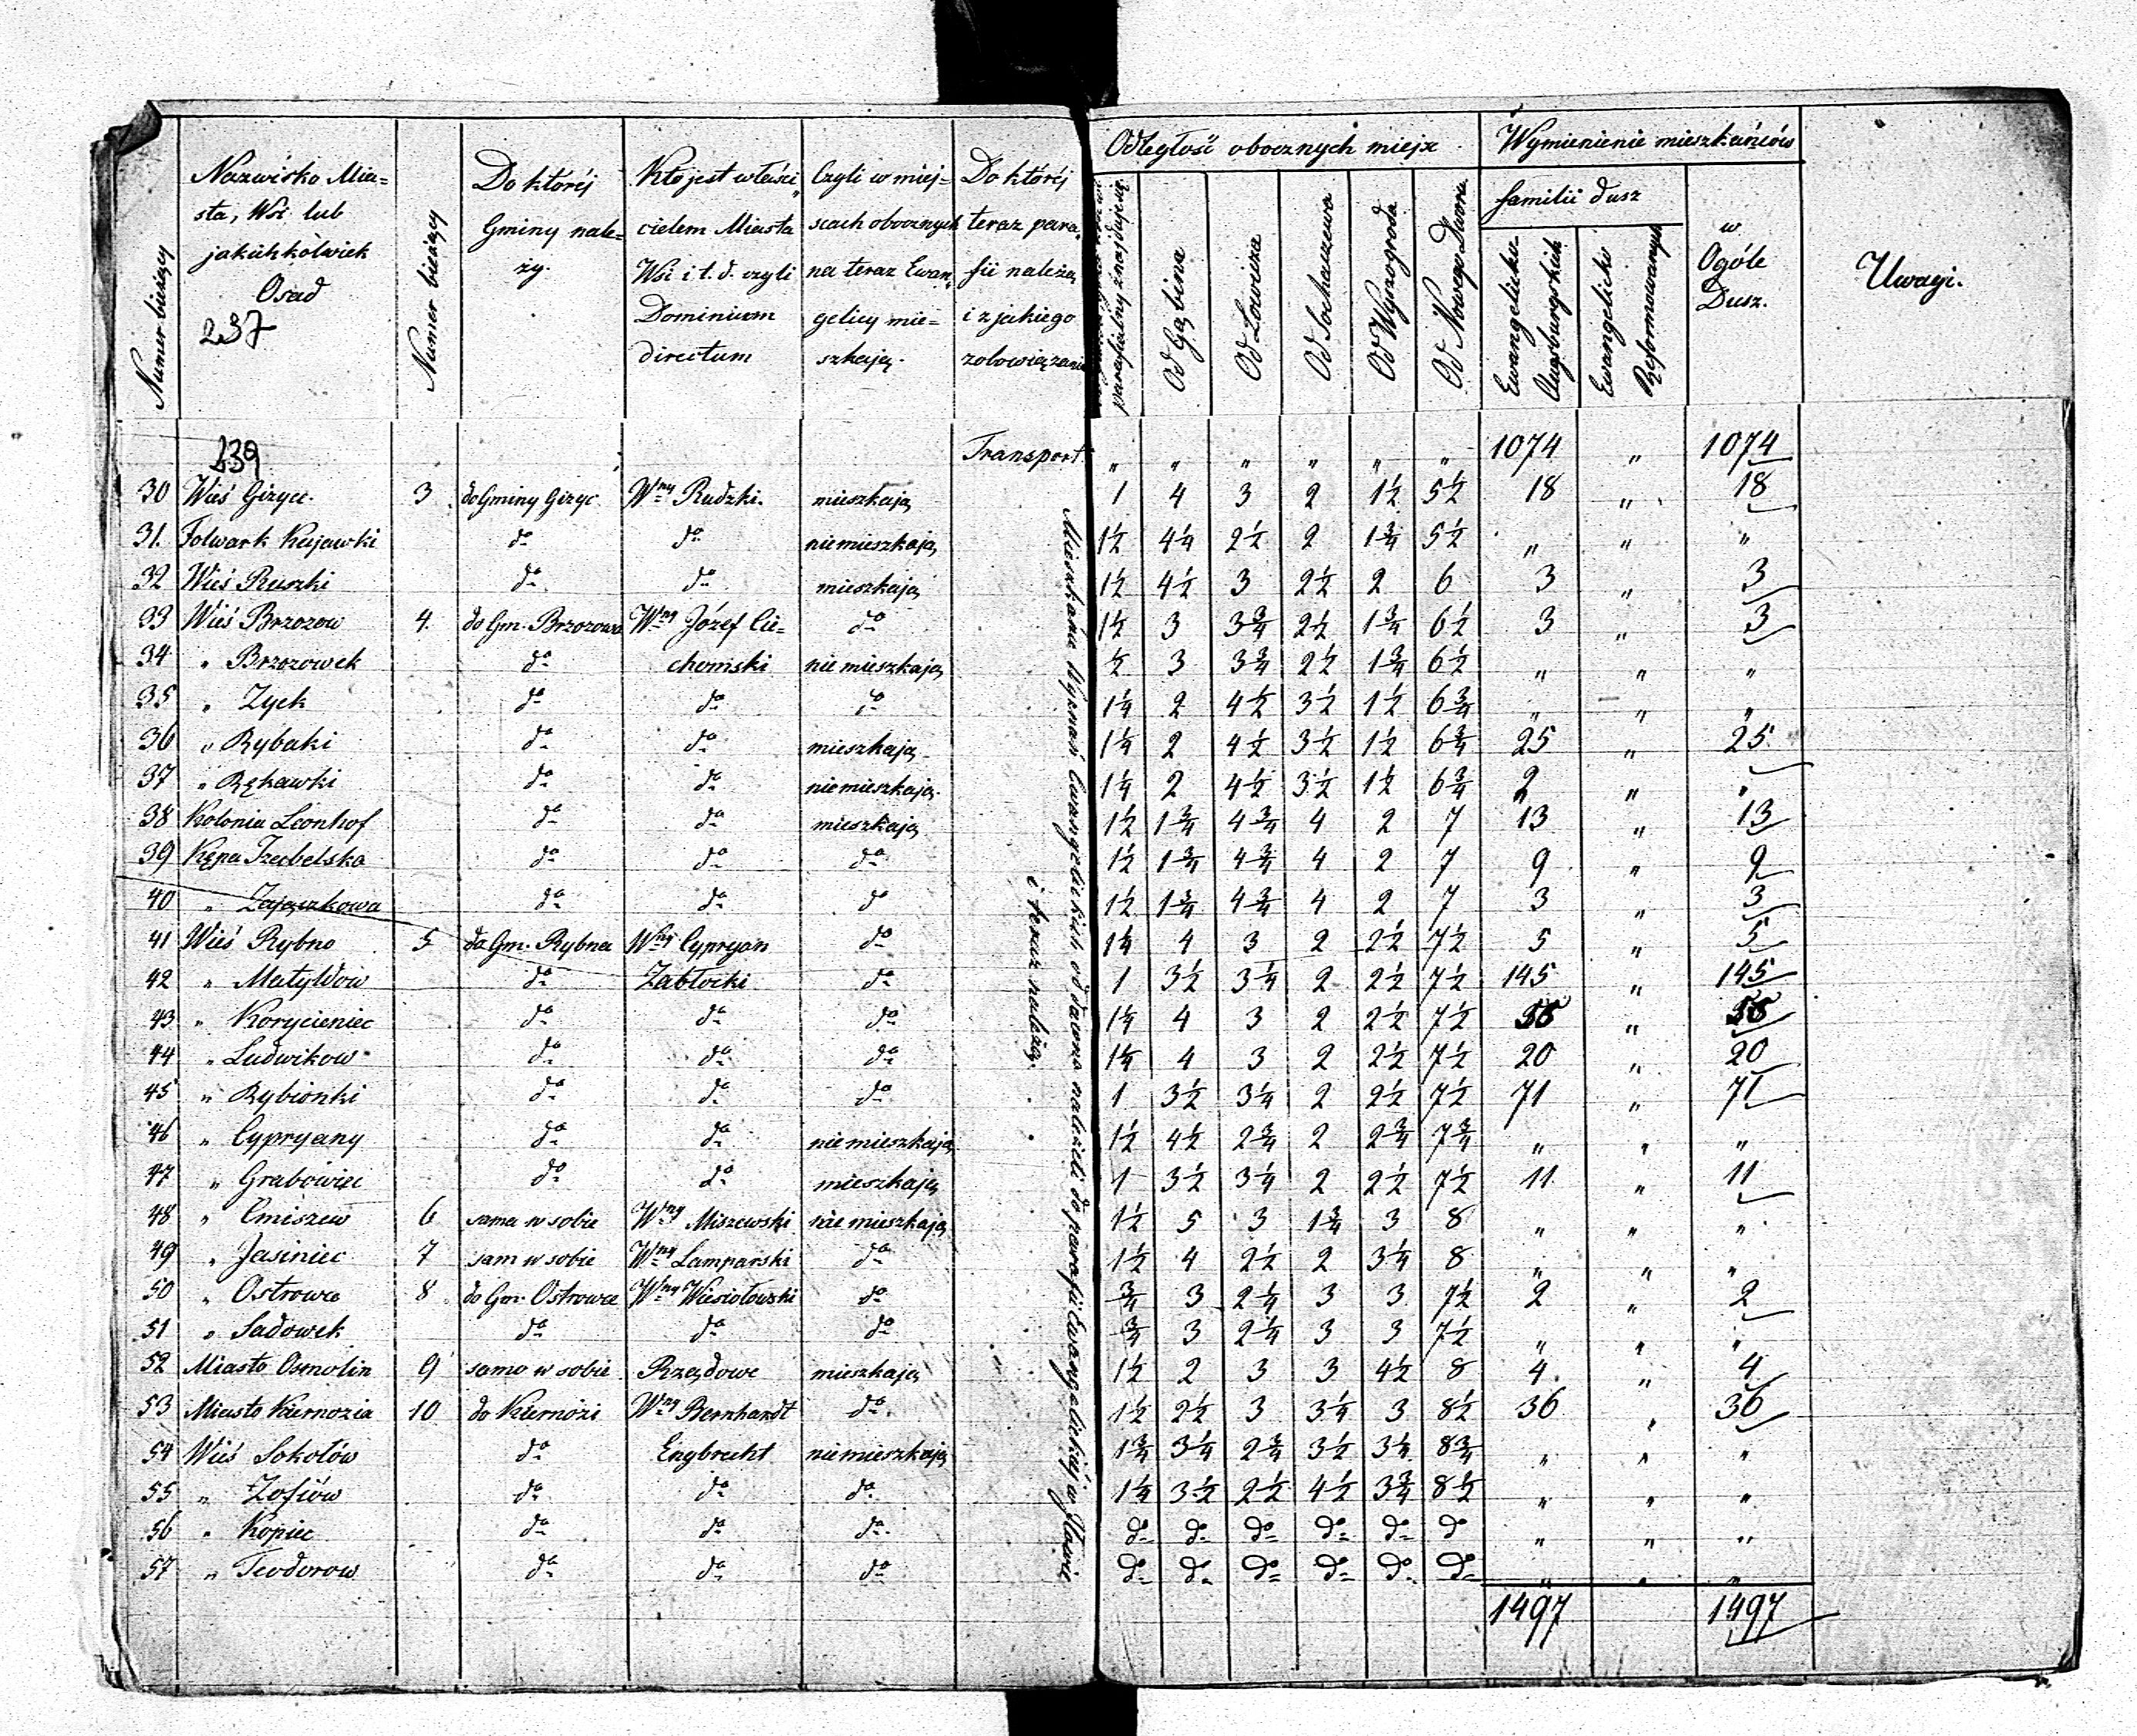 Numer bieżący
Nazwisko Mia=
sta, Wsi lub
jakichkolwiek
Osad
237
Numer bieżący
Do której
Gminy nale=
ży.
Kto jest właści„
cielem Miasta
Wsi i t. d. czyli
Dominium
directum
Czyli w miej=
scach obocznych
na teraz Ewan„
gelicy mie=
szkają.
Do której
teraz para„
fii należą
i z jakiego
zobowiązania
Odległość obocznych miejsc
parafialny znajduje się
Od Gąbina
Od Łowicza
Od Sochaczewa
Od Wyszogroda
Od Nowego Dworu
Wymienienie mieszkańców
familii dusz
Ewangelicko Augsburgskich
Ewangelicko Reformowanych
w
Ogóle
Dusz.
Uwagi.
239 Transport „ „ „ „ „ „ 1074 „ 1074
30 Wieś Giżyce 3 do Gminy Giżyc Wny Rudzki. mieszkają 1 4 3 2 1½ 5½ 18 „ 18
31. Folwark Kujawki do do niemieszkają 1½ 4¼ 2½ 2 1¾ 5½ „ „ „
32 Wieś Ruszki do do mieszkają 1½ 4½ 3 2½ 2 6 3 „ 3
33 Wieś Brzozow 4. do Gm. Brzozowa Wny Józef Cie= do 1½ 3 3¾ 2½ 1¾ 6½ 3 „ 3
34 „ Brzozowek do chomski nie mieszkają ½ 3 3¾ 2½ 1¾ 6½ „ „ „
35 „ Zyck do do do 1¼ 2 4½ 3½ 1½ 6¾ „ „ „
36 „ Rybaki do do mieszkają 1¼ 2 4½ 3½ 1½ 6¾ 25 „ 25
37 „ Rękawki do do niemieszkają. 1¼ 2 4½ 3½ 1½ 6¾ „ „
38 Kolonia Leonhof do do mieszkają 1½ 1¾ 4¾ 4 2 7 13 „ 13
39 Kępa Trebelska do do do 1½ 1¾ 4¾ 4 2 7 9 „ 9
40 „ Zajączkowa do do do 1½ 1¾ 4¾ 4 2 7 3 „ 3
41 Wieś Rybno 5 do Gm. Rybna Wny Cypryan do 1¼ 4 3 2 2½ 7½ 5 „ 5
42 „ Matyldow do Zabłocki do 1 3½ 3¼ 2 2½ 7½ 145 „ 145
43 „ Koryciniec do do do 1¼ 4 3 2 2½ 7½ „
44 „ Ludwikow do do do 1¼ 4 3 2 2½ 7½ 20 „ 20
45 „ Rybionki do do do 1 3½ 3¼ 2 2½ 7½ 71 „ 71
46 „ Cypryany do do nie mieszkają 1½ 4½ 2¾ 2 2¾ 7¾ „ „ „
47 „ Grabowiec do do mieszkają 1 3½ 3¼ 2 2½ 7½ 11 „ 11
48 „ Cmiszew 6 sama w sobie Wny Miszewski nie mieszkają 1½ 5 3 1¾ 3 8 „ „ „
49 „ Jasiniec 7 sam w sobie Wny Lamparski do 1½ 4 2½ 2 3¼ 8 „ „ „
50 „ Ostrowce 8 do Gm. Ostrowce Wny Wiesiołowski do ¾ 3 2¼ 3 3 7½ 2 „ 2
51 „ Sadowek do do do ¾ 3 2¼ 3 3 7½ „ „ „
52 Miasto Osmolin 9 samo w sobie Rządowe mieszkają 1½ 2 3 3 4½ 8 4 „ 4
53 Miasto Kiernozia 10 do Kiernozi Wny Bernhardt do 1½ 2½ 3 3¼ 3 8½ 36 „ 36
54 Wieś Sokołów do Engbrecht niemieszkają 1¾ 3¼ 2¾ 3½ 3¼ 8¾ „ „ „
55 „ Zofiów do do do 1¼ 3½ 2½ 4½ 3¾ 8½ „ „ „
56 „ Kopiec do do do do do do do do do „ „ „
57 „ Teodorow do do do do do do do do do „ „ „
1497 1497
Mieszkańce Wyznań Ewangelickich od dawna należeli do parafii Ewangelickiej w Iłowie
i teraz należą.